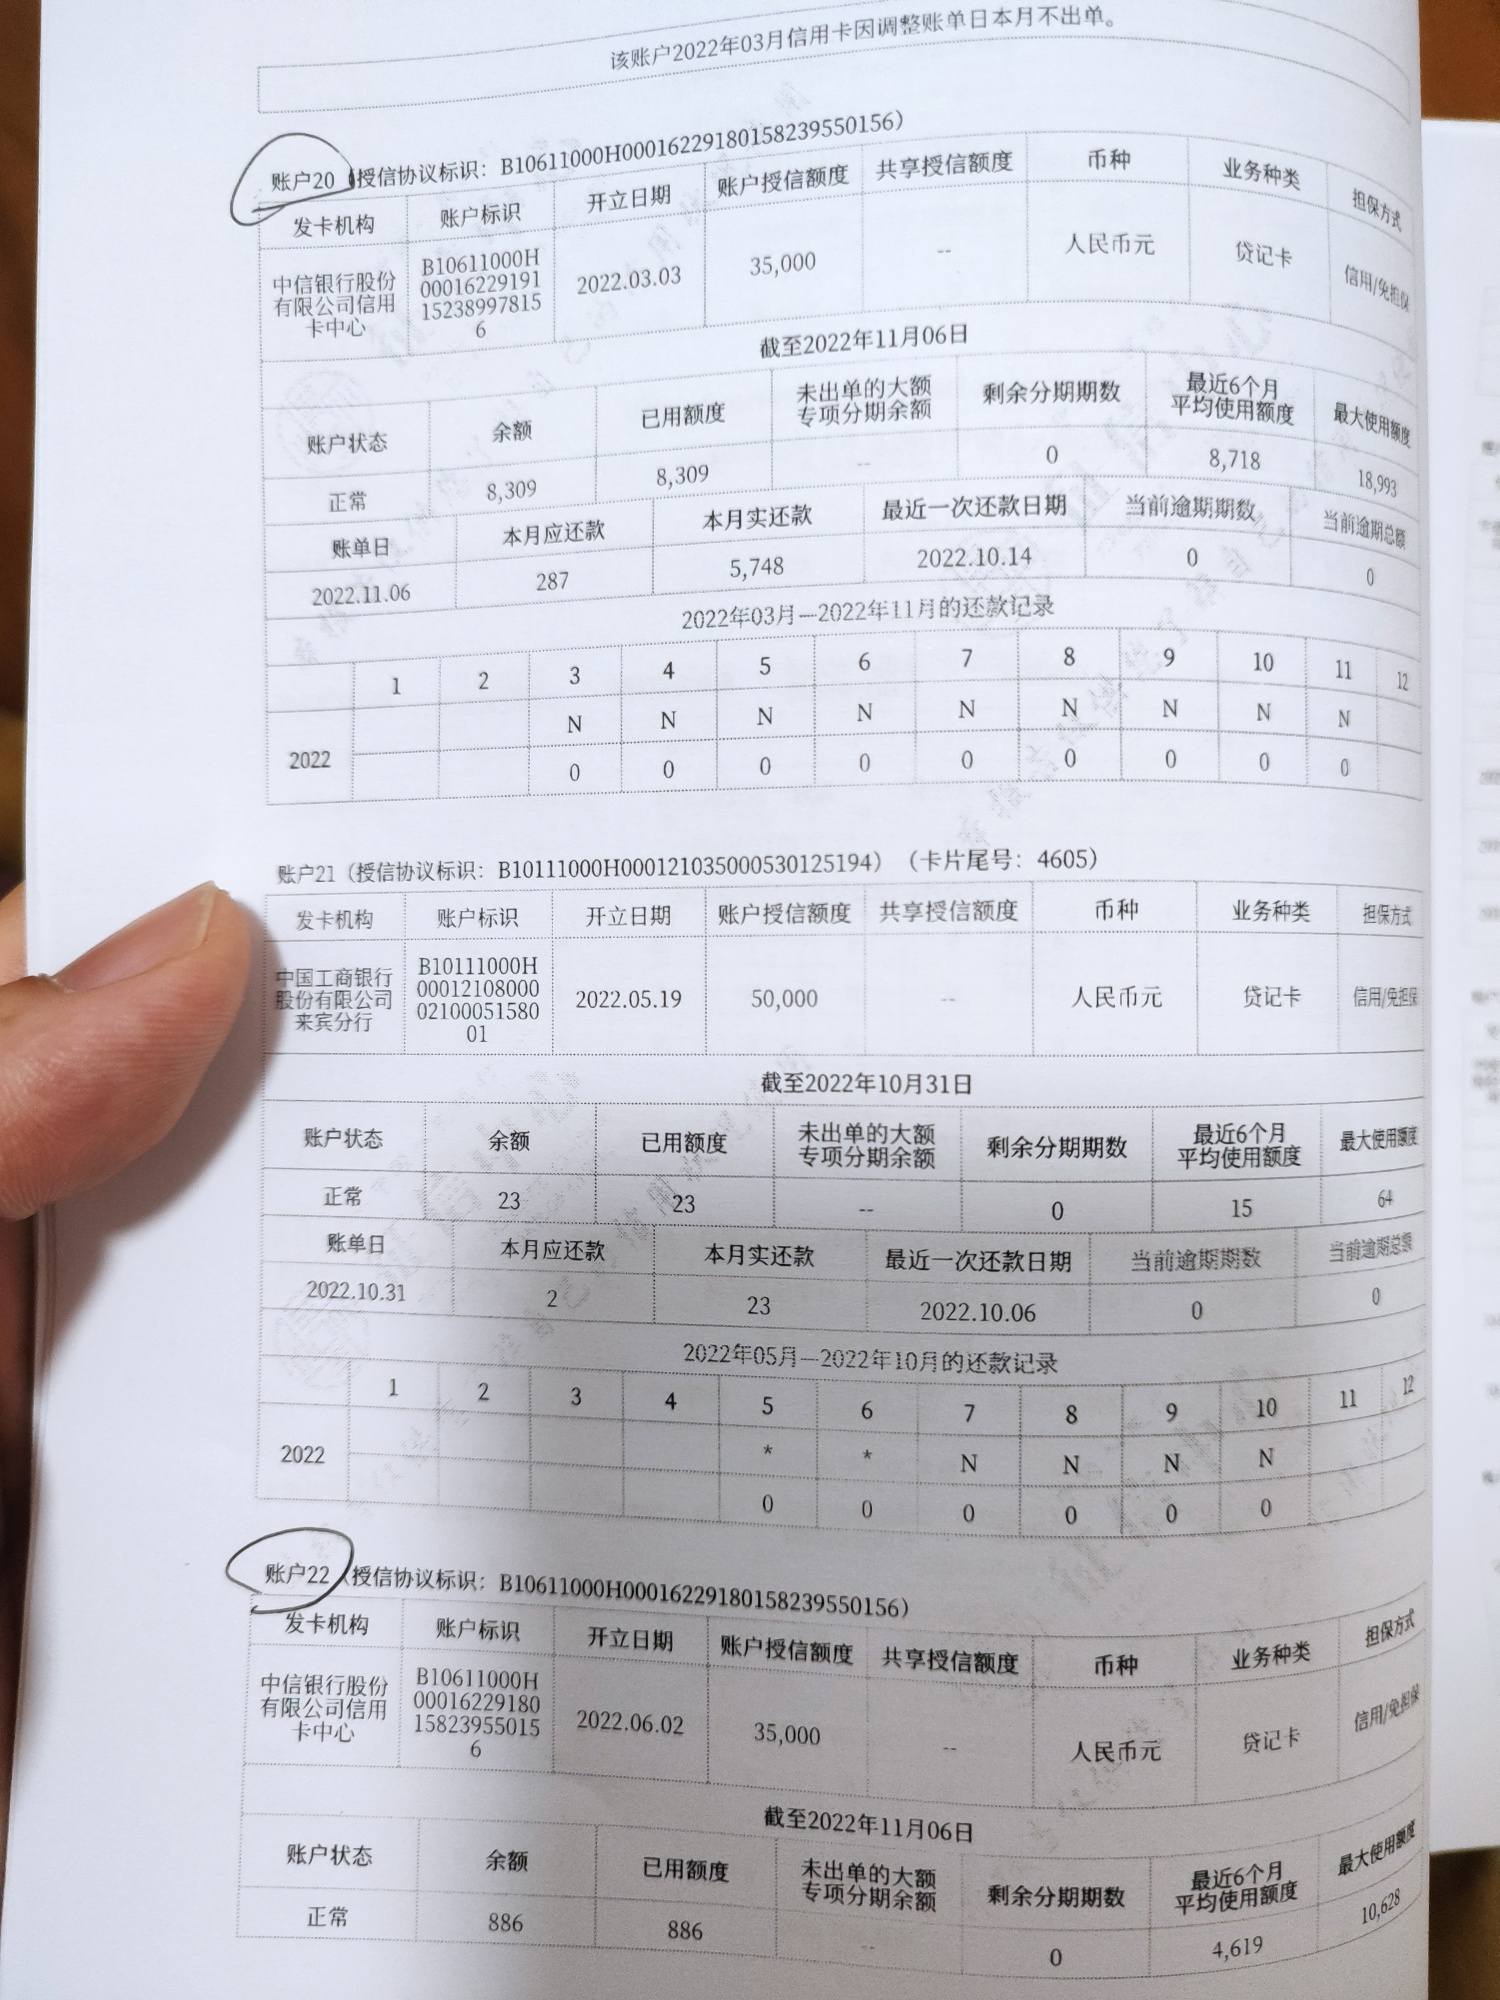 该账户2022年03月信用卡因调整账单日本月不出单。
账户20（授信协议标识：B10611000H00016229180158239550156）
发卡机构 账户标识 开立日期 账户授信额度 共享授信额度 币种 业务种类 担保方式
中信银行股份有限公司信用卡中心 B10611000H00016229191152389978156 2022.03.03 35,000 -- 人民币元 贷记卡 信用/免担保
截至2022年11月06日
账户状态 余额 已用额度 未出单的大额专项分期余额 剩余分期期数 最近6个月平均使用额度 最大使用额度
正常 8,309 8,309 -- 0 8,718 18,993
账单日 本月应还款 本月实还款 最近一次还款日期 当前逾期期数 当前逾期总额
2022.11.06 287 5,748 2022.10.14 0 0
2022年03月—2022年11月的还款记录
1 2 3 4 5 6 7 8 9 10 11 12
N N N N N N N N N
2022
0 0 0 0 0 0 0 0 0
账户21（授信协议标识：B10111000H000121035000530125194）（卡片尾号：4605）
发卡机构 账户标识 开立日期 账户授信额度 共享授信额度 币种 业务种类 担保方式
中国工商银行股份有限公司来宾分行 B10111000H00012108000021000515801 2022.05.19 50,000 -- 人民币元 贷记卡 信用/免担保
截至2022年10月31日
账户状态 余额 已用额度 未出单的大额专项分期余额 剩余分期期数 最近6个月平均使用额度 最大使用额度
正常 23 23 -- 0 15 64
账单日 本月应还款 本月实还款 最近一次还款日期 当前逾期期数 当前逾期总额
2022.10.31 2 23 2022.10.06 0 0
2022年05月—2022年10月的还款记录
1 2 3 4 5 6 7 8 9 10 11 12
* * N N N N
2022
0 0 0 0 0 0
账户22（授信协议标识：B10611000H00016229180158239550156）
发卡机构 账户标识 开立日期 账户授信额度 共享授信额度 币种 业务种类 担保方式
中信银行股份有限公司信用卡中心 B10611000H00016229180158239550156 2022.06.02 35,000 -- 人民币元 贷记卡 信用/免担保
截至2022年11月06日
账户状态 余额 已用额度 未出单的大额专项分期余额 剩余分期期数 最近6个月平均使用额度 最大使用额度
正常 886 886 -- 0 4,619 10,628